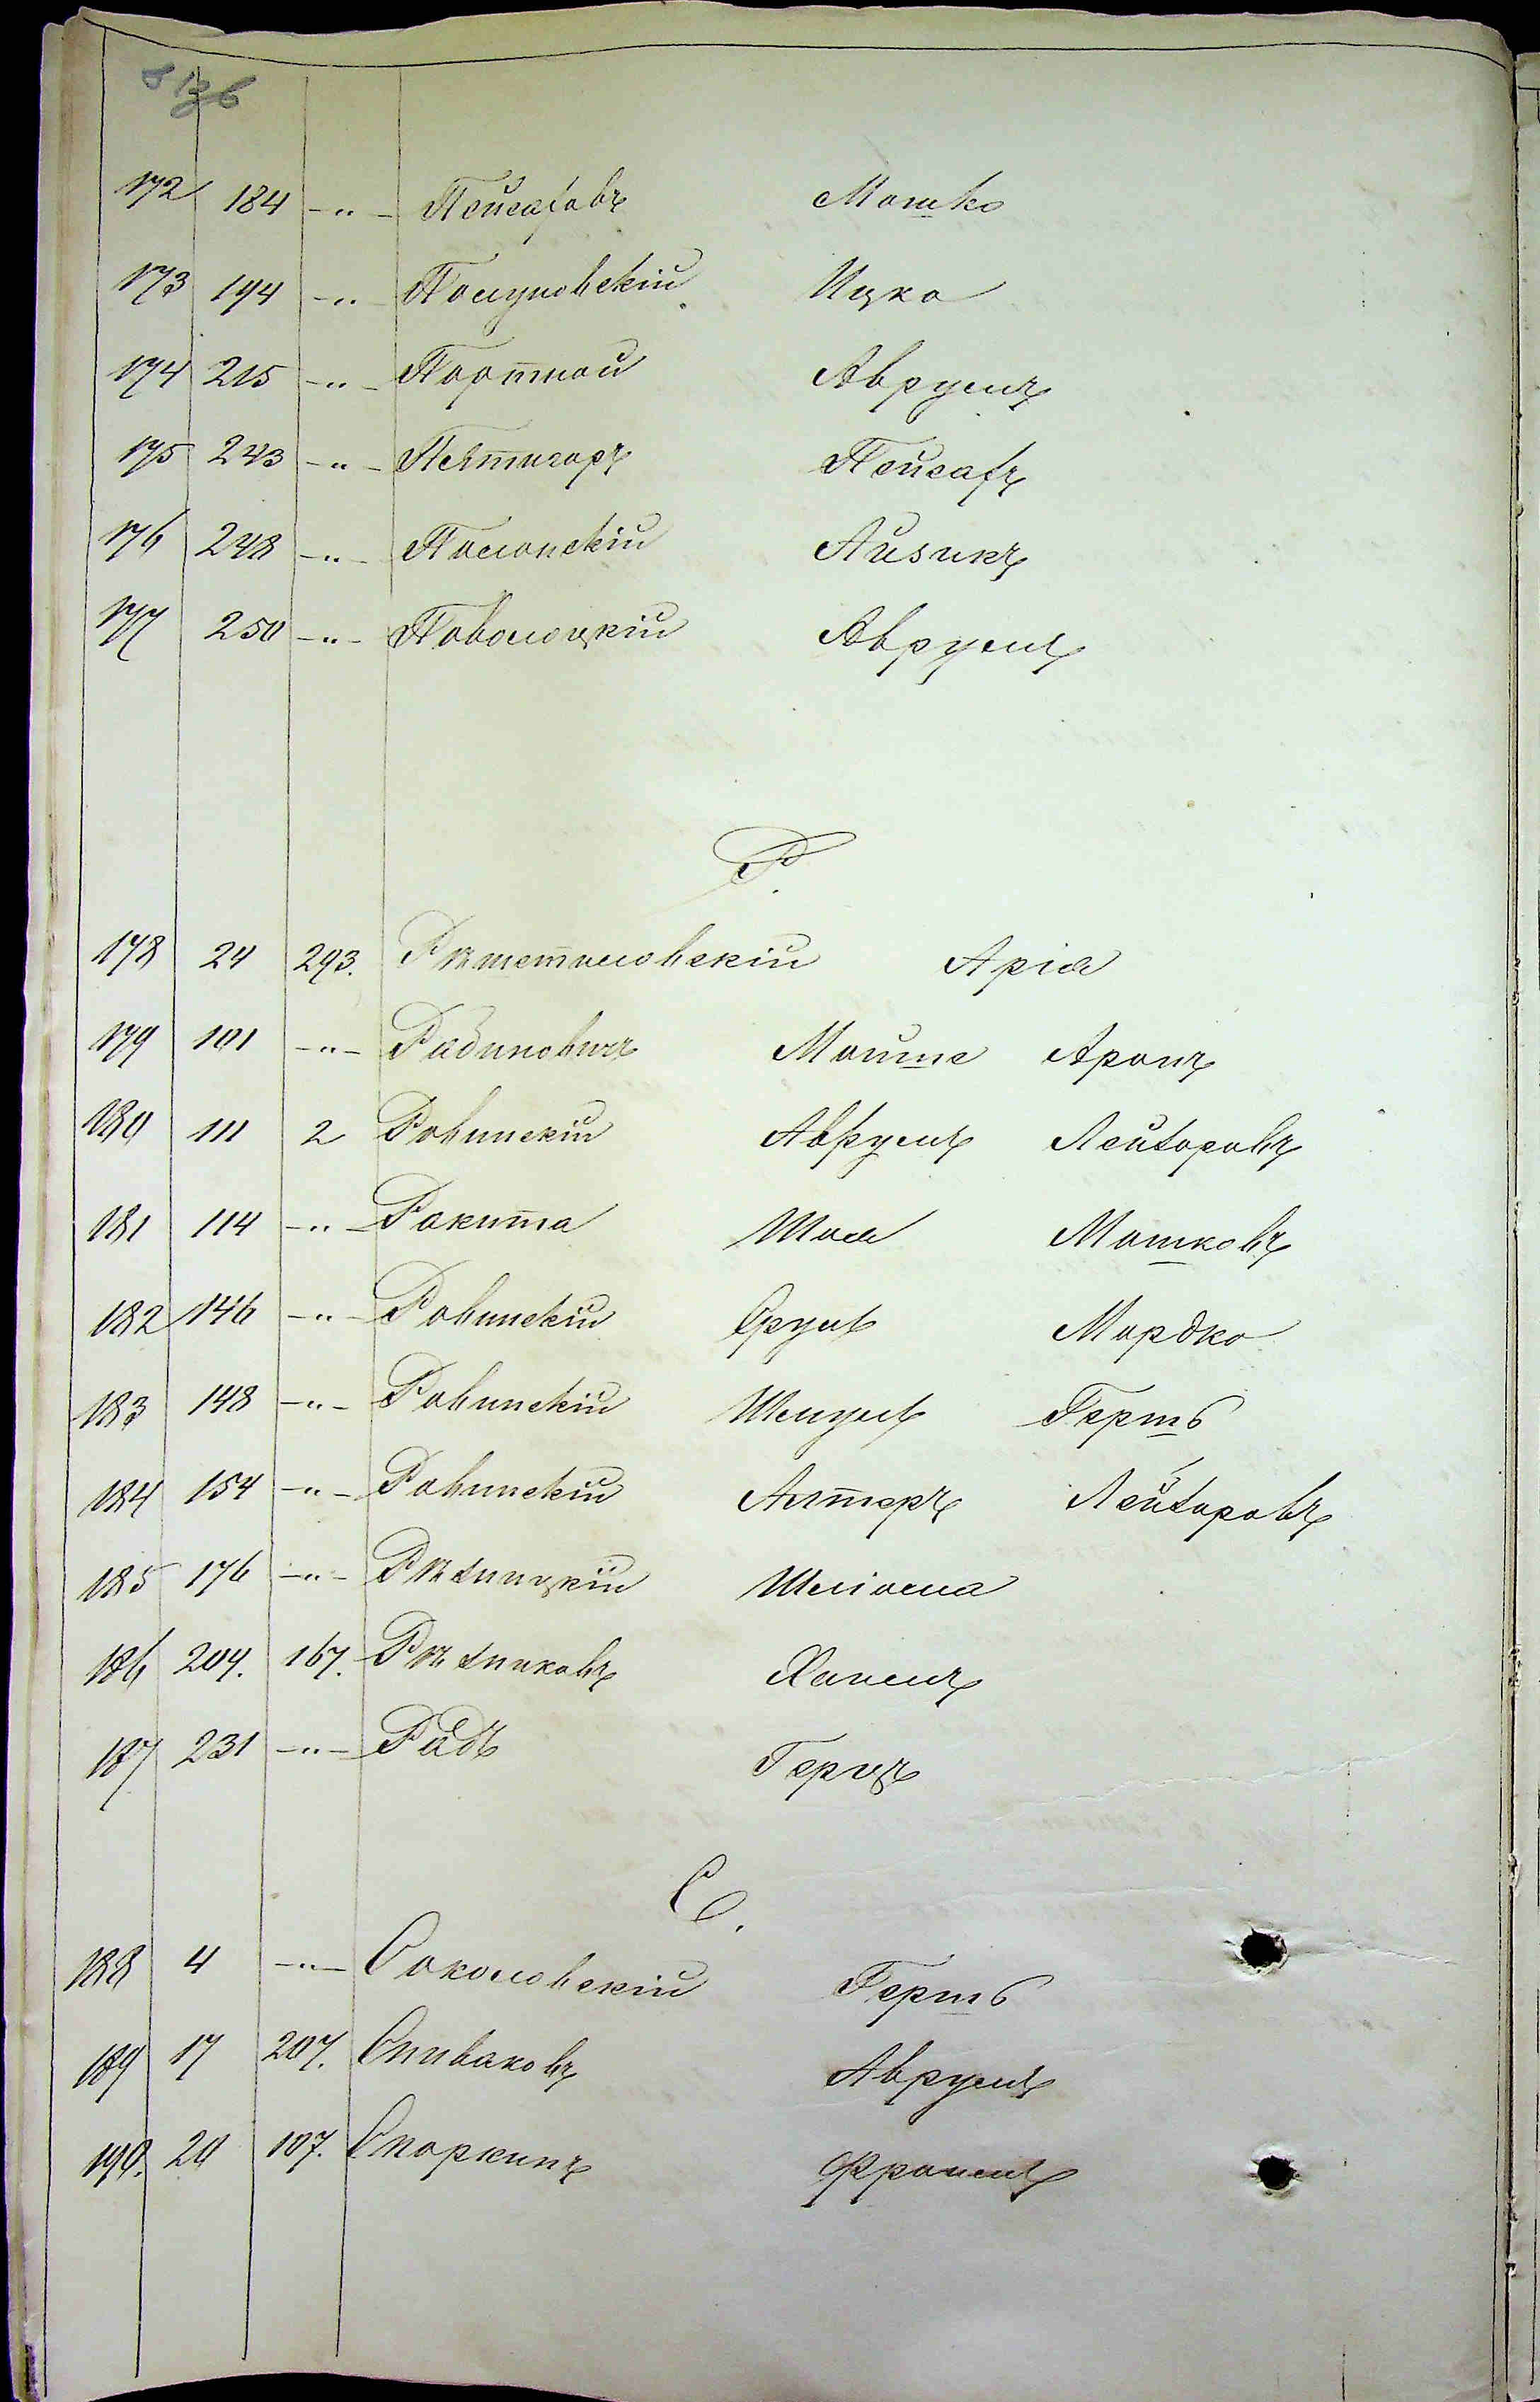 172 184 -"- Пейсаховъ Мошко
173 194 -"- Ицко
174 215 -"- Портной Аврумъ
175 243 -"- Пятигоръ Пейсахъ
176 248 -"- Полонскій Айзикъ
177 250 -"- Поволоцкій Аврумъ
Р.
178 24 293. Рѣшетиловскій Арія
179 101 -"- Рабиновичъ Мойше Аронъ
180 111 2 Ровинскій Аврумъ Лейзоровъ
181 114 -"- Ракита Шая Мошковъ
182 146 -"- Ровинскій Сруль Мордко
183 148 -"- Ровинскій Шмуль Гершъ
184 154 -"- Ровинскій Алтеръ Лейзоровъ
185 176 -"- Рѣзницкій Шліома
186 204. 167. Рѣзниковъ Ханемъ
187 231 -"- Радъ Герцъ
С.
188 4 -"- Соколовскій Гершъ
189 17 207. Спиваковъ Аврумъ
190. 20 107. Споркинъ Фроимъ